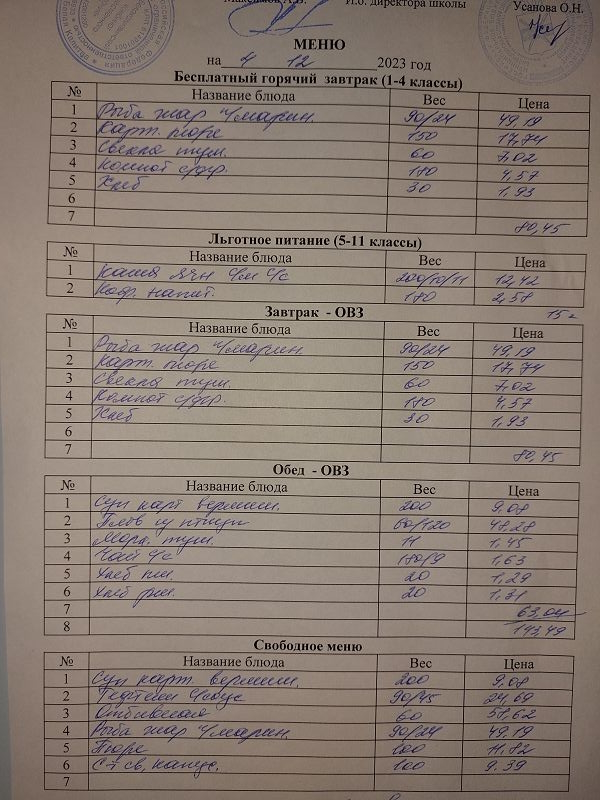 Максимов А.В. И.о. директора школы
Усанова О.Н.
МЕНЮ
на 4 12 2023 год
Бесплатный горячий завтрак (1-4 классы)
№ Название блюда Вес Цена
1 Рыба жар ч/марин. 90/24 49,19
2 Карт. пюре 150 17,74
3 Свекла туш. 60 7,02
4 Компот с/фр. 180 4,57
5 Хлеб 30 1,93
6
7 80,45
Льготное питание (5-11 классы)
№ Название блюда Вес Цена
1 Каша ячн ч/м ч/с 200/10/11 12,42
2 Коф. напит. 180 2,58
15=
Завтрак - ОВЗ
№ Название блюда Вес Цена
1 Рыба жар ч/марин. 90/24 49,19
2 Карт. пюре 150 17,74
3 Свекла туш. 60 7,02
4 Компот с/фр. 180 4,57
5 Хлеб 30 1,93
6
7 80,45
Обед - ОВЗ
№ Название блюда Вес Цена
1 Суп карт вермиш. 200 9,08
2 Плов птицы 60/120 48,28
3 Морк. туш. 11 1,45
4 Чай ч/с 180/9 1,63
5 Хлеб пш. 20 1,29
6 Хлеб рж. 20 1,31
7 63,04
8 143,49
Свободное меню
№ Название блюда Вес Цена
1 Суп карт. вермиш. 200 9,08
2 Тефтели ч/соус 90/45 24,69
3 Отбивная 60 58,62
4 Рыба жар ч/марин. 90/24 49,19
5 Пюре 100 11,82
6 С-т св, капус. 100 9.39
7